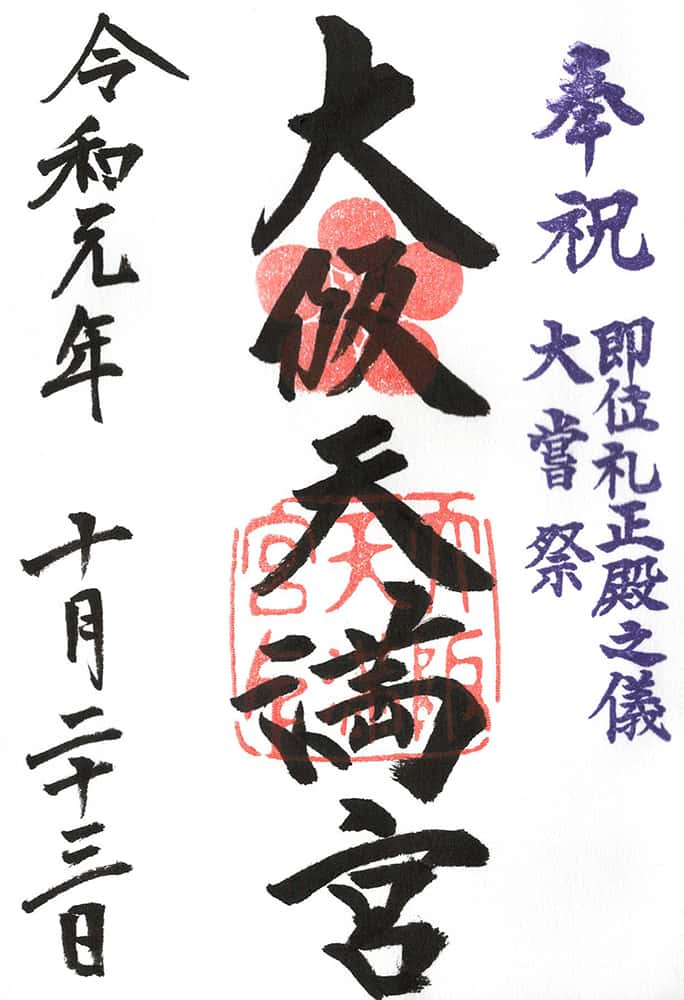 奉祝
即位礼正殿之儀
大嘗祭
大阪天満宮
大阪
天満
宮印
令和元年 十月二十三日